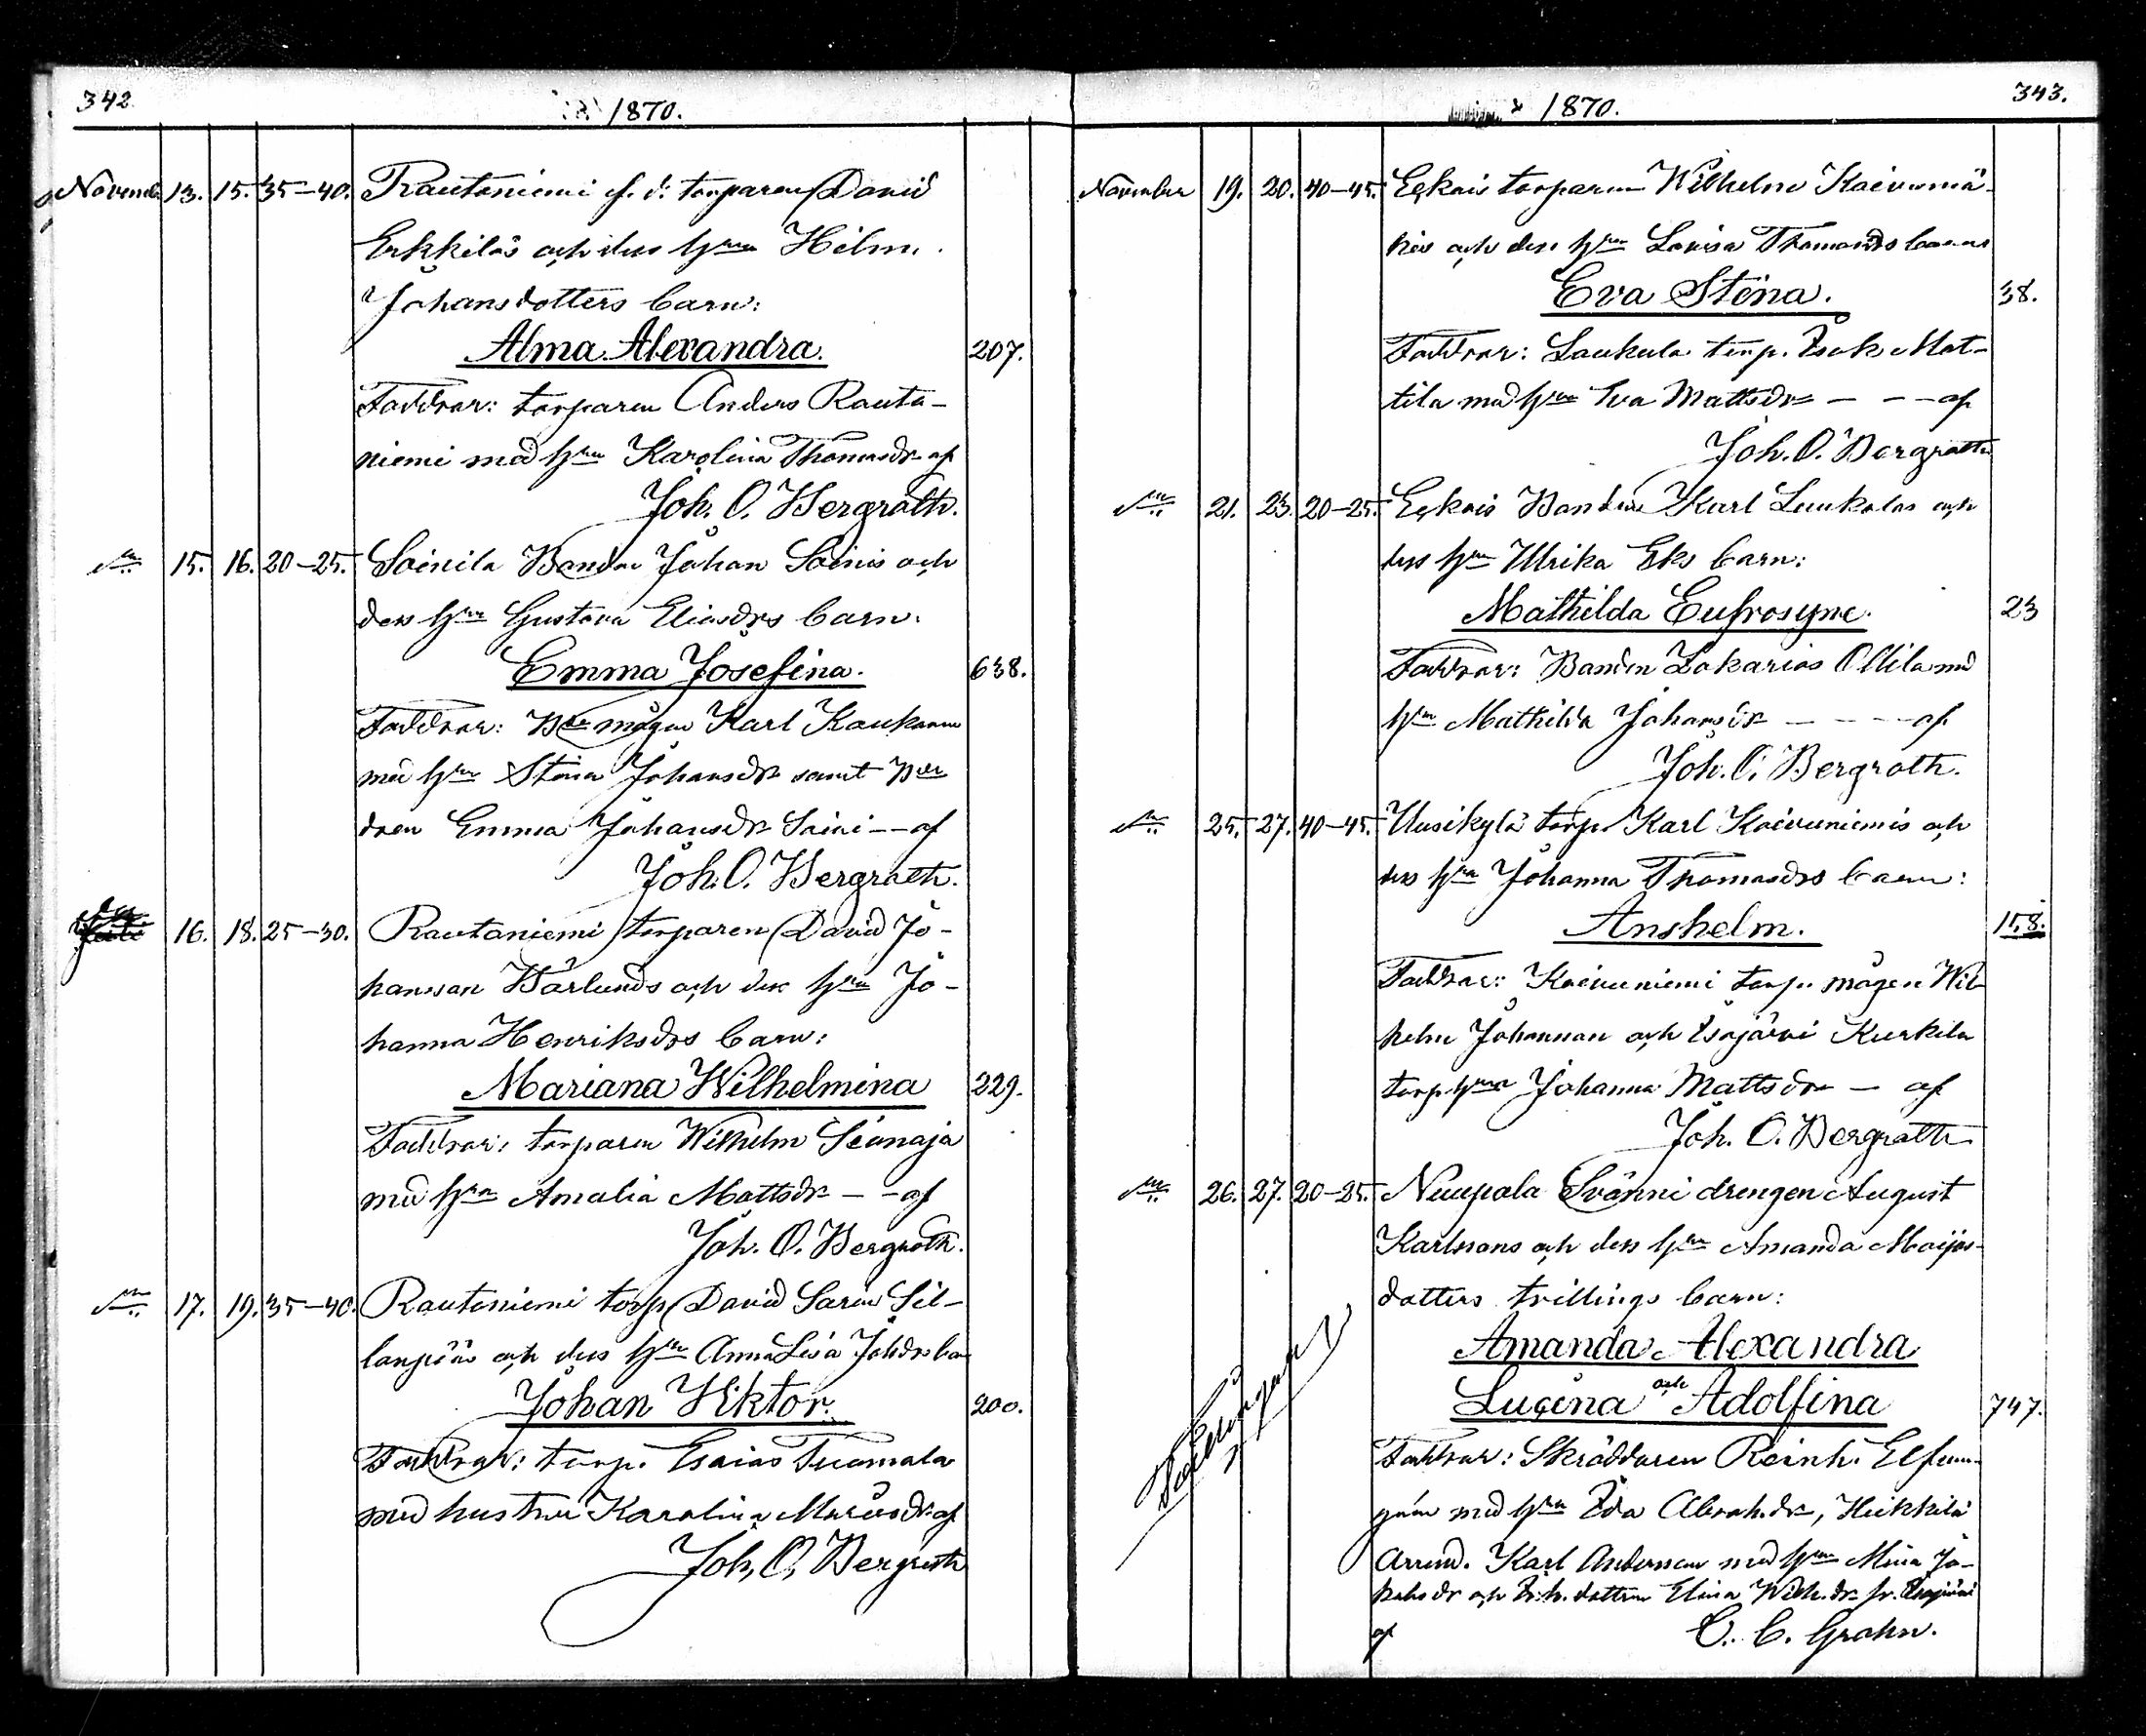 342.
1870.
Novemb 13. 15. 35–40. Rautaniemi f. d. torparen David
Erkkiläs och dess hru Helm.
Johansdotters barn:
Alma Alexandra. 207.
Faddrar: torparen Anders Rauta-
niemi med hru Karolina Thomasdr af
Joh. O. Bergroth.
15. 16. 20–25. Soinila Bonden Johan Soinis och
dess hru Gustava Eliasdrs barn.
Emma Josefina. 638.
Faddrar: mågen Karl Kaukonen
med hru Stina Johansdr samt
dren Emma Johansdr Soini -- af
Joh. O. Bergroth.
16. 18. 25–30. Rautaniemi torparen David Jo-
hansson Bärlunds och dess hru Jo-
hanna Henriksdrs barn:
Mariana Wilhelmina 229.
Faddrar: torparen Wilhelm
med hru Amalia Mattsdr - - af
Joh. O. Bergroth.
17. 19. 35–40. Rautaniemi torp David Saren Sil-
lanpääs och dess hru Anna Lisa Johdrs ba
Johan Viktor. 200.
Faddrar: torp. Esaias Tuomala
med hustru Karolina af
Joh. O. Bergroth
343.
1870.
November 19. 20. 40–45. torparen Wilhelm Kaivomä-
kis och dess hru Lovisa Thomasdrs barns
Eva Stina. 38.
Faddrar: Laukula torp. Isak Mat-
tila med hru Eva Mattsdr – – – af
Joh. O. Bergroth
21. 23. 20–25. Bonden Karl Laukolas och
dess hru Ulrika Eks barn:
Mathilda Eufrosyne. 23
Faddrar: Bonden Zakarias Ollila med
hru Mathilda Johansdr – – – – af
Joh. O. Bergroth.
25. 27. 40–45. Uusikylä torp. Karl Kaivuniemis och
dess hru Johanna Thomasdrs barn:
Anshelm. 158.
Faddrar: Kaivuniemi torp. mågen Wil-
helm Johansson och Isojärvi Kurkila
torp.hrun Johanna Mattsdr – af
Joh. O. Bergroth
26. 27. 20–25. Nuupala Svänni drengen August
Karlssons och dess hru Amanda Maijas-
dotters trillings barn:
Amanda Alexandra
Lucina och Adolfina 747.
Faddrar: Skräddaren Reinh.
med hru Ida Abrah.dr, Heikkilä
Arrend. Karl Andersson med hru Mina Ja-
kobsdr och dottren Elina Wilh.dr fr. Isojärvi
af C. C. Grahn.